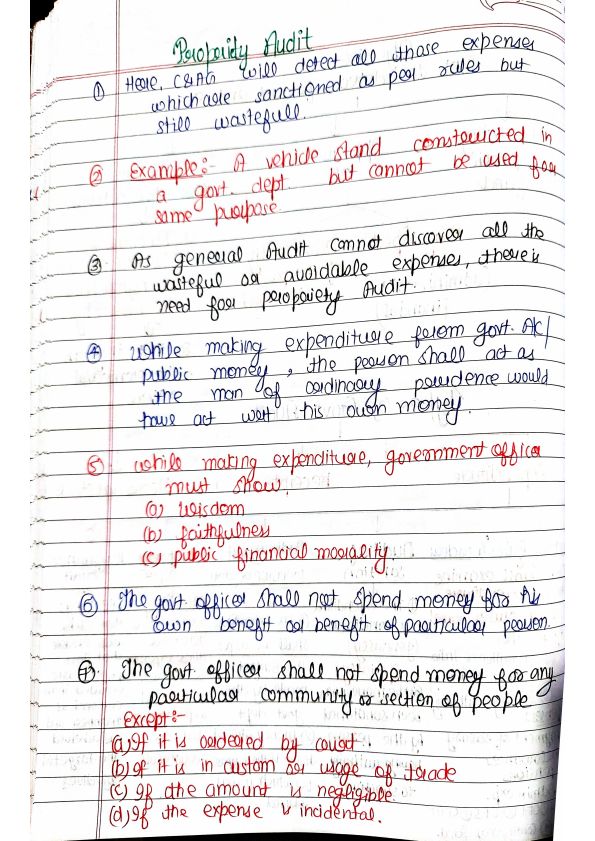 Propriety Audit
① Here, C&AG will detect all those expenses
which are sanctioned as per rules but
still wastefull.
② Example:- A vehicle stand constructed in
a govt. dept but cannot be used for
same purpose
③ As general Audit cannot discover all the
wasteful or avoidable expenses, there is
need for propriety Audit.
④ While making expenditure from govt. A/c/
public money, the person shall act as
the man of ordinary prudence would
have act wrt his own money.
⑤ while making expenditure, government officer
must show.
(a) wisdom
(b) faithfulness
(c) public financial morality.
⑥ The govt officer shall not spend money for his
own benefit or benefit of particular person.
⑦ The govt officer shall not spend money for any
particular community or section of people
Except:-
(a) If it is ordered by court.
(b) If it is in custom or usage of trade
(c) If the amount is negligible.
(d) If the expense is incidental.